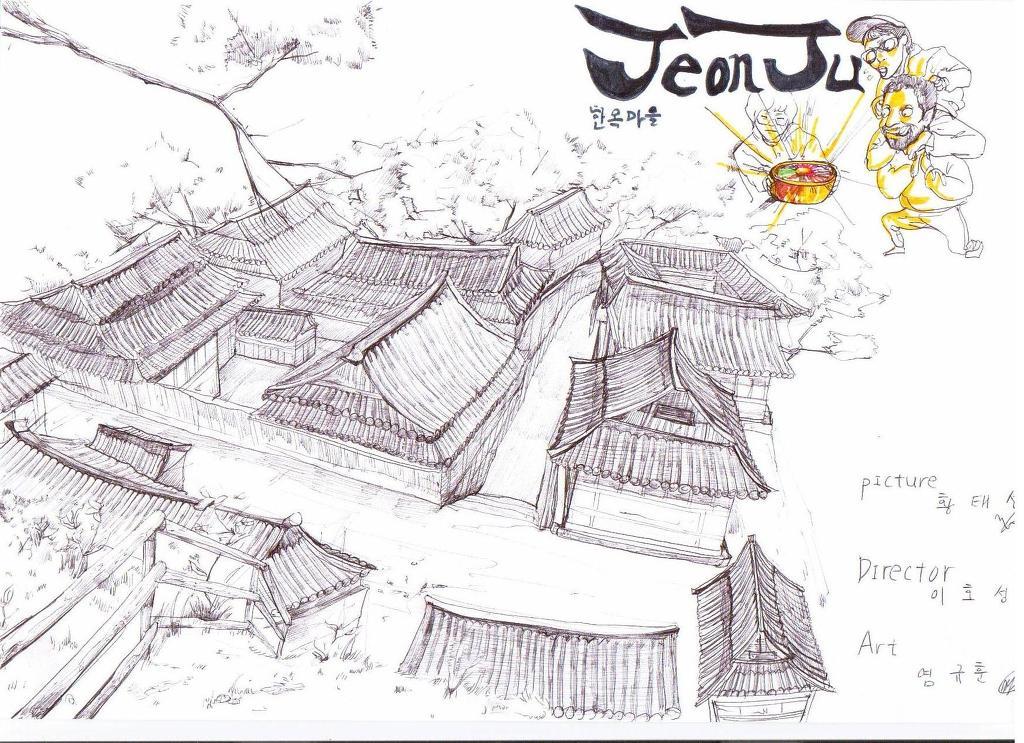 JeonJu
한옥마을
picture
황 태
Director
이 호 성
Art
염 규 훈